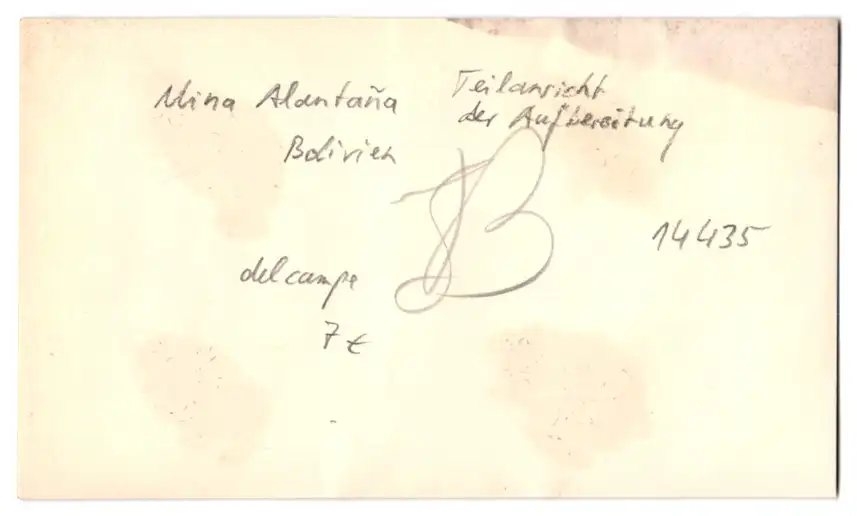 Mina Alantaña
Bolivien
Teilansicht
der Aufbereitung
B
14435
delcampe
7 €